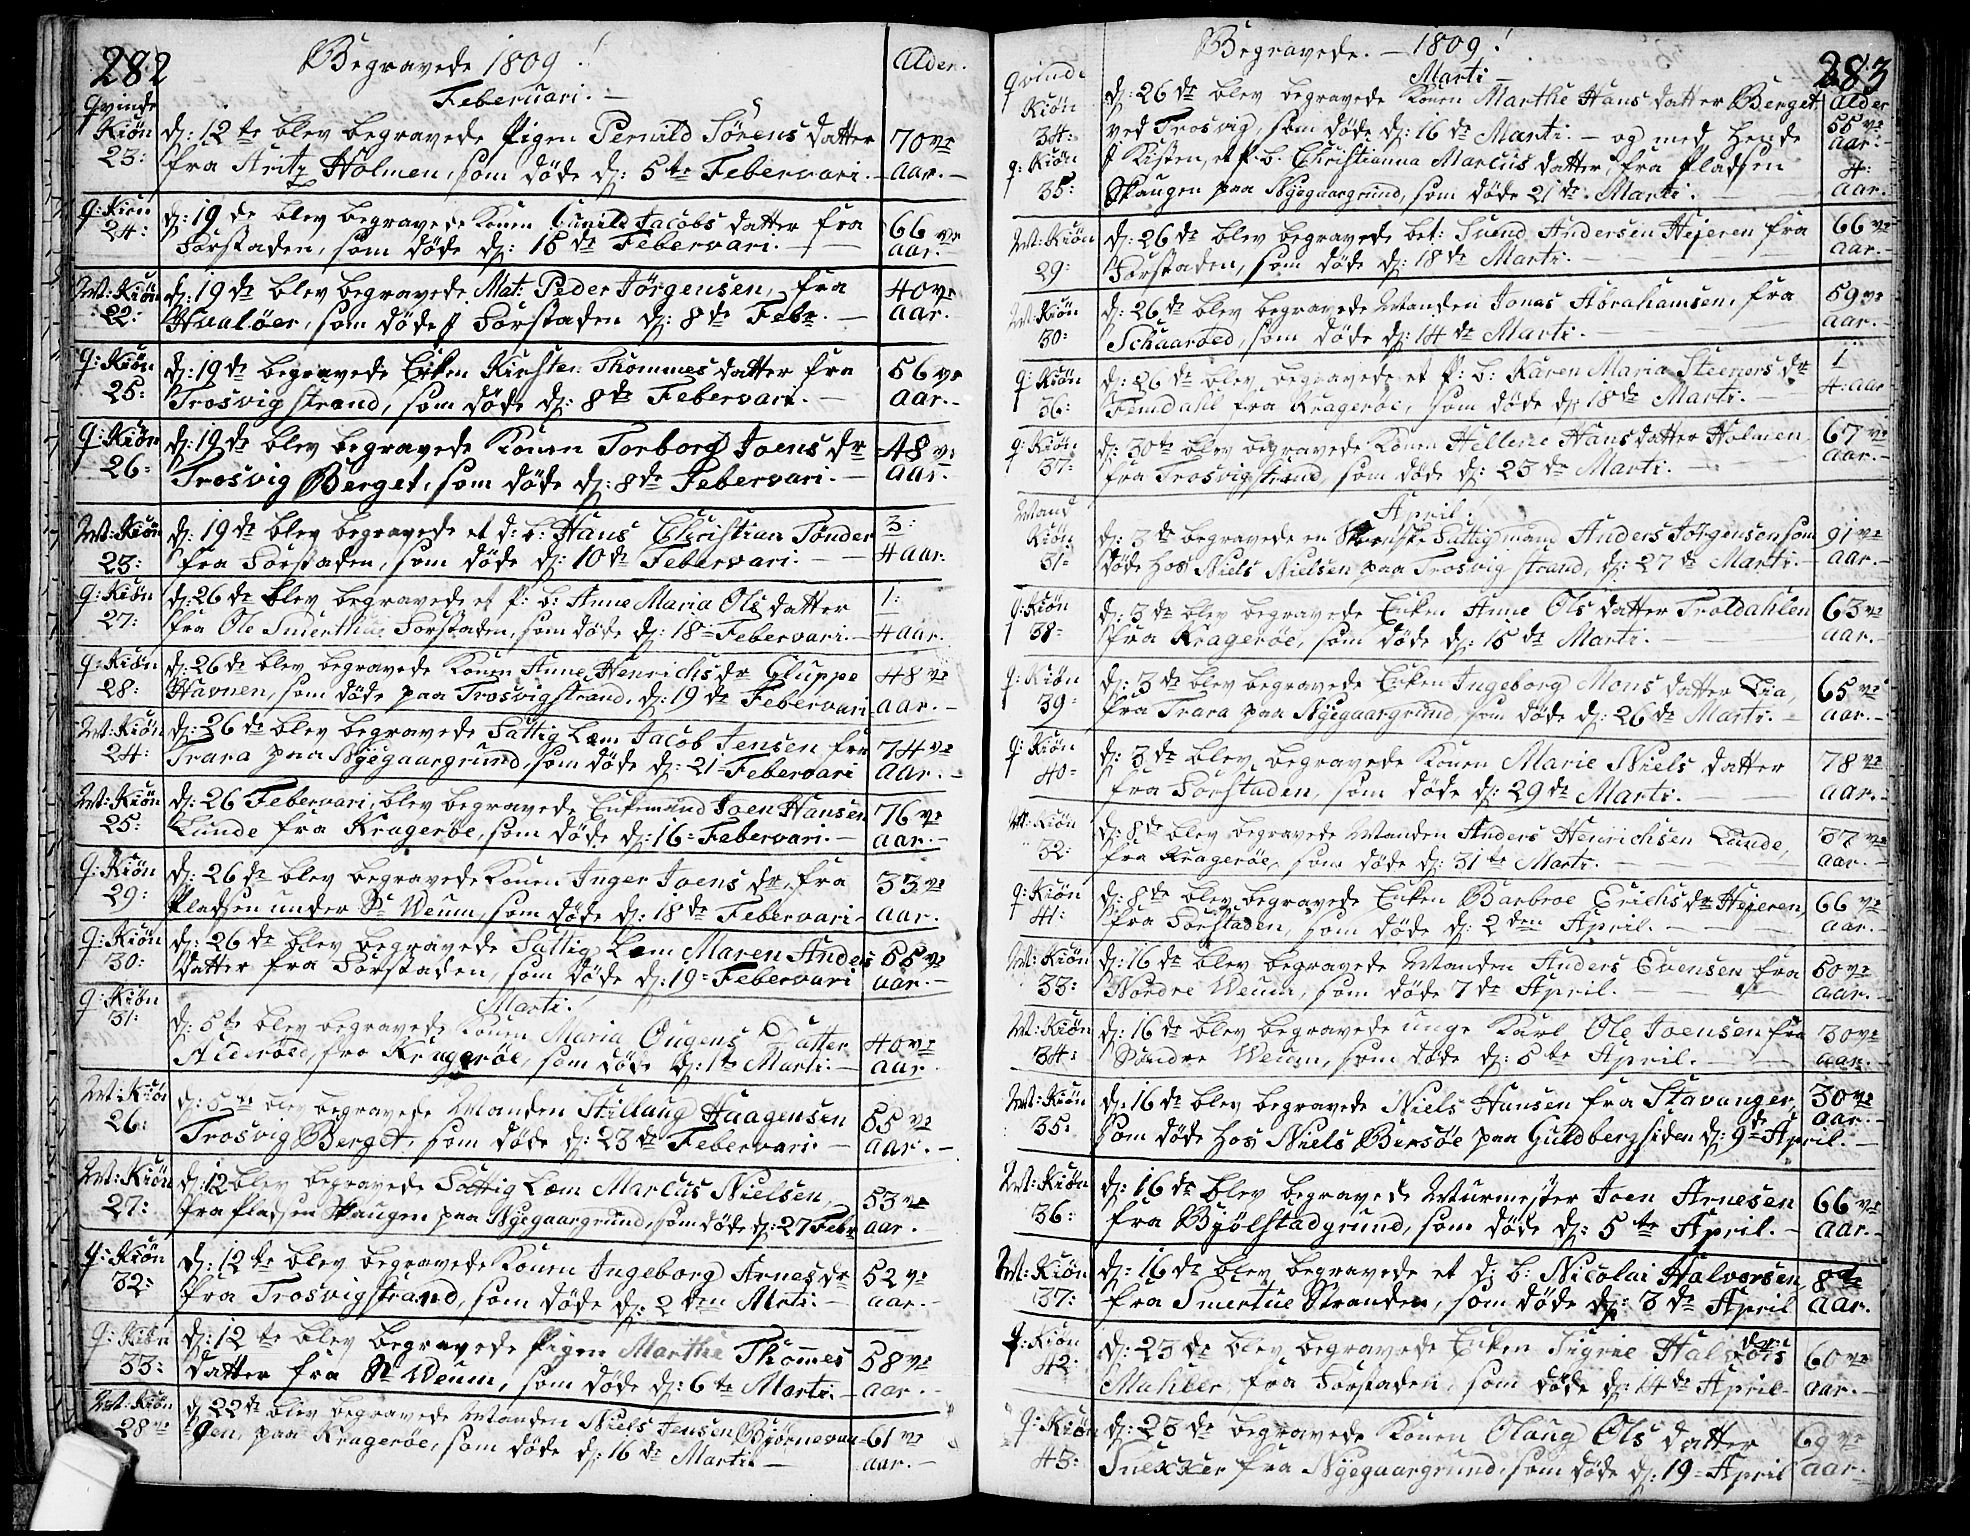 282
Begravede 1809!
Alder.
Februari.
Qvinde
Kiøn
23:
dj: 12te blev begravede Pigen Pernild Sørens datter
fra Aritz Holmen, som døde dj: 5te Februari.
70ve
Aar.
q: Kiøn
24:
dj: 19de blev begravede Konen Gunild Jacobs datter fra
Forstaden, som døde dj: 15de Februari.
66ve
aar.
M: Kiøn
22:
dj: 19de blev begravede Mat: Peder Jørgensen, fra
Hvaløer, som døde i Forstaden dj: 8de Febr.
40ve
aar.
q: Kiøn
25:
dj: 19de begravede Enken Kirsten Thommesdatter fra
Trosvigstrand, som døde dj: 8de Februari.
56ve
aar.
q: Kiøn
26:
dj: 19de blev begravede Konen Torborg Joens dr
Trosvig Berget, som døde dj: 8de Februari.
48ve
aar.
M: Kiøn
23:
dj: 19de blev begravede et d: b: Hans Christian Tønder
fra Forstaden, som døde dj: 10de Februari.
3:
4 aar.
q: Kiøn
27:
dj: 26de blev begravede et P: b: Anne Maria Ols datter
fra Ole Smerthue Forstaden, som døde dj: 18= Februari.
1:
4 aar.
q: Kiøn
28:
dj: 26de blev begravede Konen Anne Henrichs dr Gluppe
Havnen, som døde paa Trosvigstrand, dj: 19de Februari
48ve
aar.
M: Kiøn
24:
dj: 26de blev begravede Fattig Lem Jacob Jensen fra
Trara paa Nyegaargrund, som døde dj: 21= Februari
74ve
aar.
M: Kiøn
25:
dj: 26 Februari, blev begravede Enkemand Joen Hansen
Lunde fra Kragerøe, som døde dj: 16= Februari.
76ve
aar.
q: Kiøn
29:
dj: 26de blev begravede Konen Inger Joens dr, fra
Pladsen under Sr Weum, som døde dj: 18de Februari.
33ve
aar.
q: Kiøn
30:
dj: 26de blev begravede Fattig Lem Maren Anders
datter fra Forstaden, som døde dj: 19= Februari
55ve
aar.
Marti!
q: Kiøn
31:
dj: 5te blev begravede Konen Maria Ougens Datter
Alderøed, fra Kragerøe, som døde dj: 1te Marti.
40ve
aar.
M: Kiøn
26:
dj: 5te blev begravede Manden Stillaug Haagensen
Trosvig Berget, som døde dj: 23de Februari
55ve
aar.
M: Kiøn
27:
dj: 12 blev begravede Fattig Lem Marcus Nielsen,
fra pladsen Skaugen paa Nyegaargrund, som døde dj: 27 Febr
53ve
aar.
q: Kiøn
32:
dj: 12te blev begravede Konen Ingeborg Arnes dr
fra Trosvigstrand, som døde dj: 2den Mrti.
52ve
aar.
q: Kiøn
33:
dj: 12te blev begravede Pigen Marthe Thommes
datter fra Sr Weum, som døde dj: 6te Marti.
58ve
aar.
M: Kiøn
28ve
dj 22de blev begravede Manden Niels Jensen Bjørnevan-
gen, paa Kragerøe, som døde dj: 16de Marti
61ve
aar.
Begravede. 1809!
283
Marti
Alder
qvinde
Kiøn
34:
dj: 26de blev begravede Konen Marthe Hans datter Berget
ved Trosvig, som døde dj: 16de Marti. og med hende
55ve
aar.
q: Kiøn
35:
i Kisten, et P. b. Christianna Marcus datter, fra Pladsen
Skaugen paa Nyegaargrund, som døde 21de Marti.
4:
aar.
M: Kiøn
29:
dj: 26de blev begravede bet: Svend Andersen Hejeren fra
Forstaden, som døde dj: 18de Marti.
66ve
aar.
M: Kiøn
30:
dj: 26de blev begravede Manden Jonas Abrahamsen, fra
Schaarøed, som døde dj: 14de Marti.
59ve
aar.
q: Kiøn
36:
dj: 26de blev begravede et P: b: Karen Maria Steenors dr
Femdahl fra Kragerøe, som døde dj 18de Marti.
1
4 aar
q: Kiøn
37:
dj: 30te blev begravede Konen Hellene Hansdatter Holmen,
fra Trosvigstrand, som døde dj: 23de Marti.
67ve
aar.
April!
Mand
Kiøn
31:
dj: 3de begravede en Svenske Fattigmand Anders Jørgensen som
døde hos Niels Nielsen paa Trosvig strand, dj: 27de Marti.
91ve
aar.
q: Kiøn
38:
dj: 3de blev begravede Enken Anne Ols datter Troldahlen
fra Kragerøe, som døde dj: 15de Marti.
63ve
aar.
q: Kiøn
39:
dj: 3de blev begravede Enken Ingeborg Mons datter Lia,
fra Trara paa Nyegaargrund, som døde dj: 26de Marti.
65ve
aar.
q: Kiøn
40:
dj: 3de blev begravede Konen Marie Niels datter
fra Forstaden, som døde dj: 29de Marti.
78ve
aar.
M: Kiøn
32:
dj: 8de blev begravede Manden Anders Henrichsen Lunde,
fra Kragerøe, som døde dj: 31te Marti.
37ve
aar.
q: Kiøn
41:
dj: 8de blev begravede Enken Barbroe Erichs dr Hejeren,
fra Forstaden, som døde dj: 2den April.
66ve
aar.
M: Kiøn
33:
dj: 16de blev begravede Manden Anders Evensen fra
Nordre Weum, som døde 7de April.
50ve
aar.
M: Kiøn
34:
dj: 16de blev begravede unge Karl Ole Joensen fra
Søndre Weum, som døde dj: 5te April.
30ve
aar.
M: Kiøn
35:
dj: 16de blev begravede Niels Hansen fra Stavanger,
som døde hos Niels Bersøe paa Guldbergsiden dj: 9de April.
30ve
aar.
M: Kiøn
36:
dj: 16de blev begravede Murmester Joen Arnesen
fra Bjølstadgrund, som døde dj: 5te April.
66ve
aar.
M: Kiøn
37:
dj: 16de blev begravede et d: b: Nicolai Halvorsen,
fra Smertue Stranden, som døde dj: 3de April
8te
aar.
q: Kiøn
42:
dj: 23de blev begravede Enken Sigrie Halvors
Mahler, fra Forstaden, som døde dj: 14de April.
60ve
aar.
q: Kiøn
43:
dj: 23de begravede Konen Olaug Ols datter
Snekker fra Nyegaargrund, som døde dj: 19= April
69ve
aar.